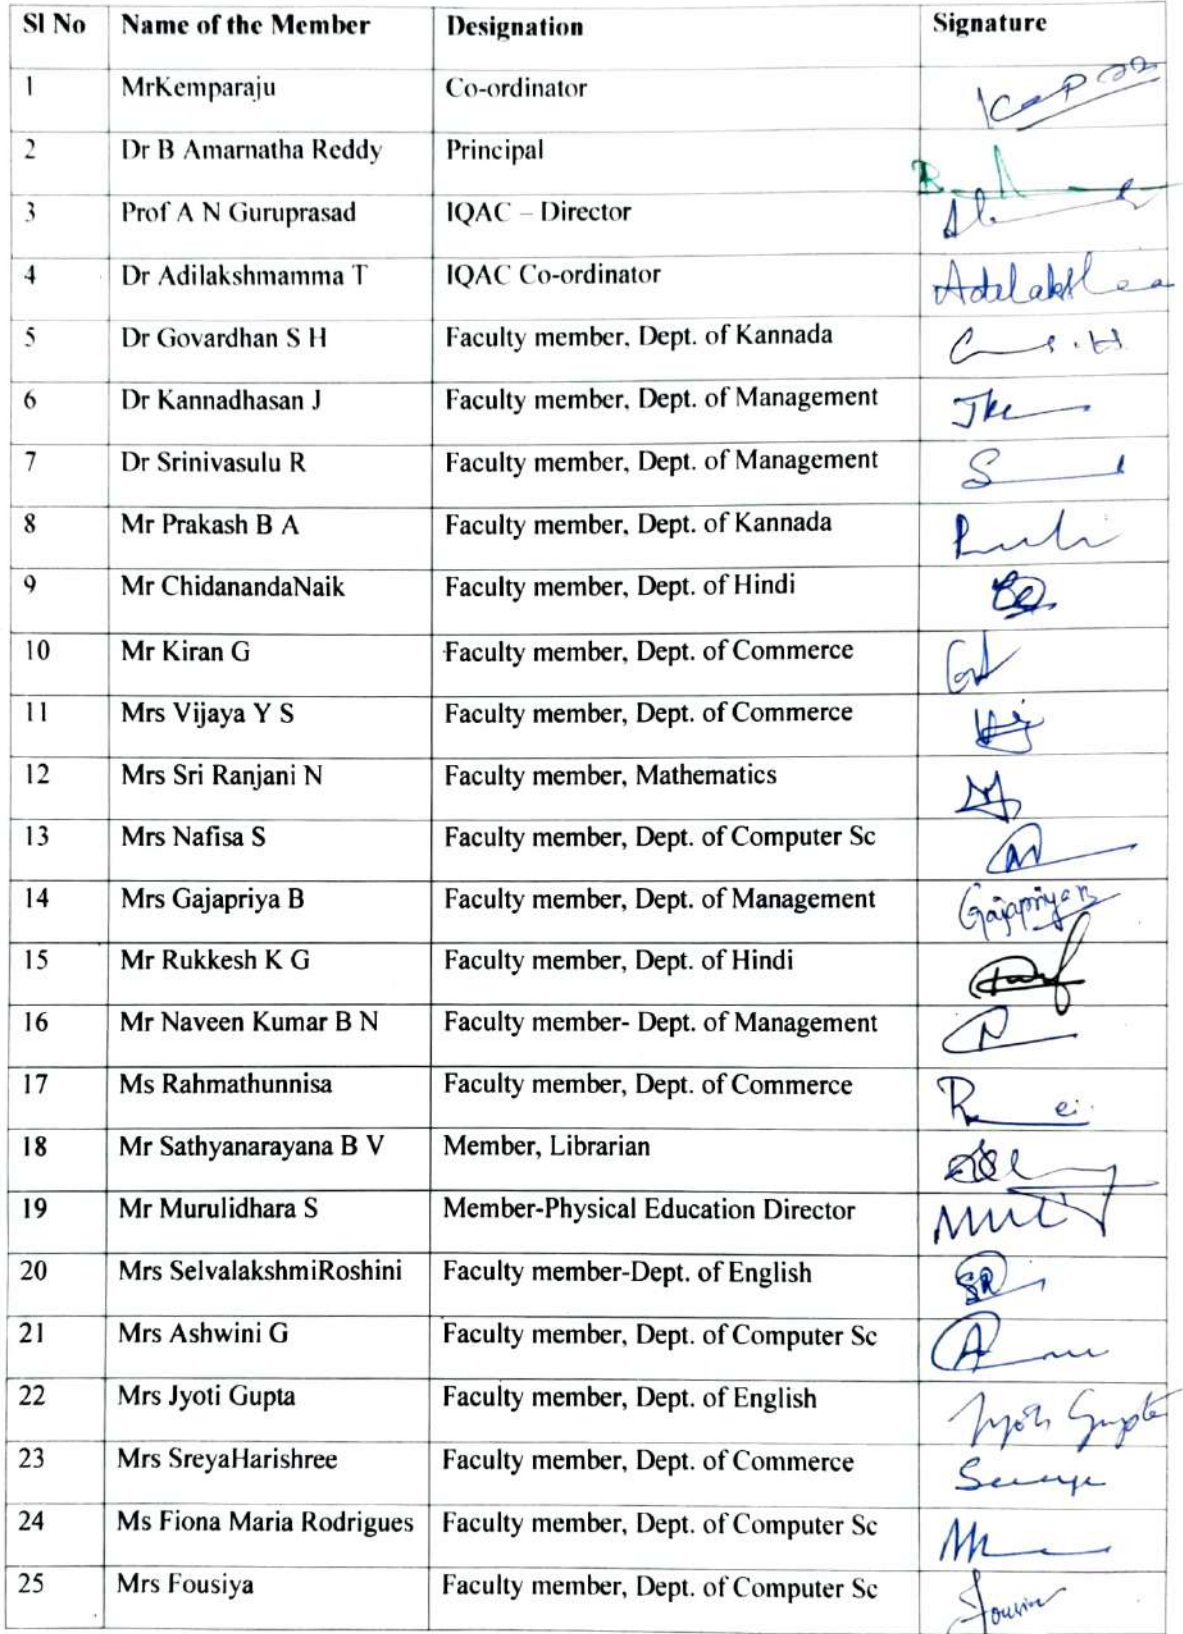 Sl No Name of the Member Designation Signature
1 MrKemparaju Co-ordinator
2 Dr B Amarnatha Reddy Principal
3 Prof A N Guruprasad IQAC – Director
4 Dr Adilakshmamma T IQAC Co-ordinator
5 Dr Govardhan S H Faculty member, Dept. of Kannada
6 Dr Kannadhasan J Faculty member, Dept. of Management
7 Dr Srinivasulu R Faculty member, Dept. of Management
8 Mr Prakash B A Faculty member, Dept. of Kannada
9 Mr ChidanandaNaik Faculty member, Dept. of Hindi
10 Mr Kiran G Faculty member, Dept. of Commerce
11 Mrs Vijaya Y S Faculty member, Dept. of Commerce
12 Mrs Sri Ranjani N Faculty member, Mathematics
13 Mrs Nafisa S Faculty member, Dept. of Computer Sc
14 Mrs Gajapriya B Faculty member, Dept. of Management Gajapriya B
15 Mr Rukkesh K G Faculty member, Dept. of Hindi
16 Mr Naveen Kumar B N Faculty member- Dept. of Management
17 Ms Rahmathunnisa Faculty member, Dept. of Commerce
18 Mr Sathyanarayana B V Member, Librarian
19 Mr Murulidhara S Member-Physical Education Director
20 Mrs SelvalakshmiRoshini Faculty member-Dept. of English
21 Mrs Ashwini G Faculty member, Dept. of Computer Sc
22 Mrs Jyoti Gupta Faculty member, Dept. of English Jyoti Gupta
23 Mrs SreyaHarishree Faculty member, Dept. of Commerce
24 Ms Fiona Maria Rodrigues Faculty member, Dept. of Computer Sc
25 Mrs Fousiya Faculty member, Dept. of Computer Sc